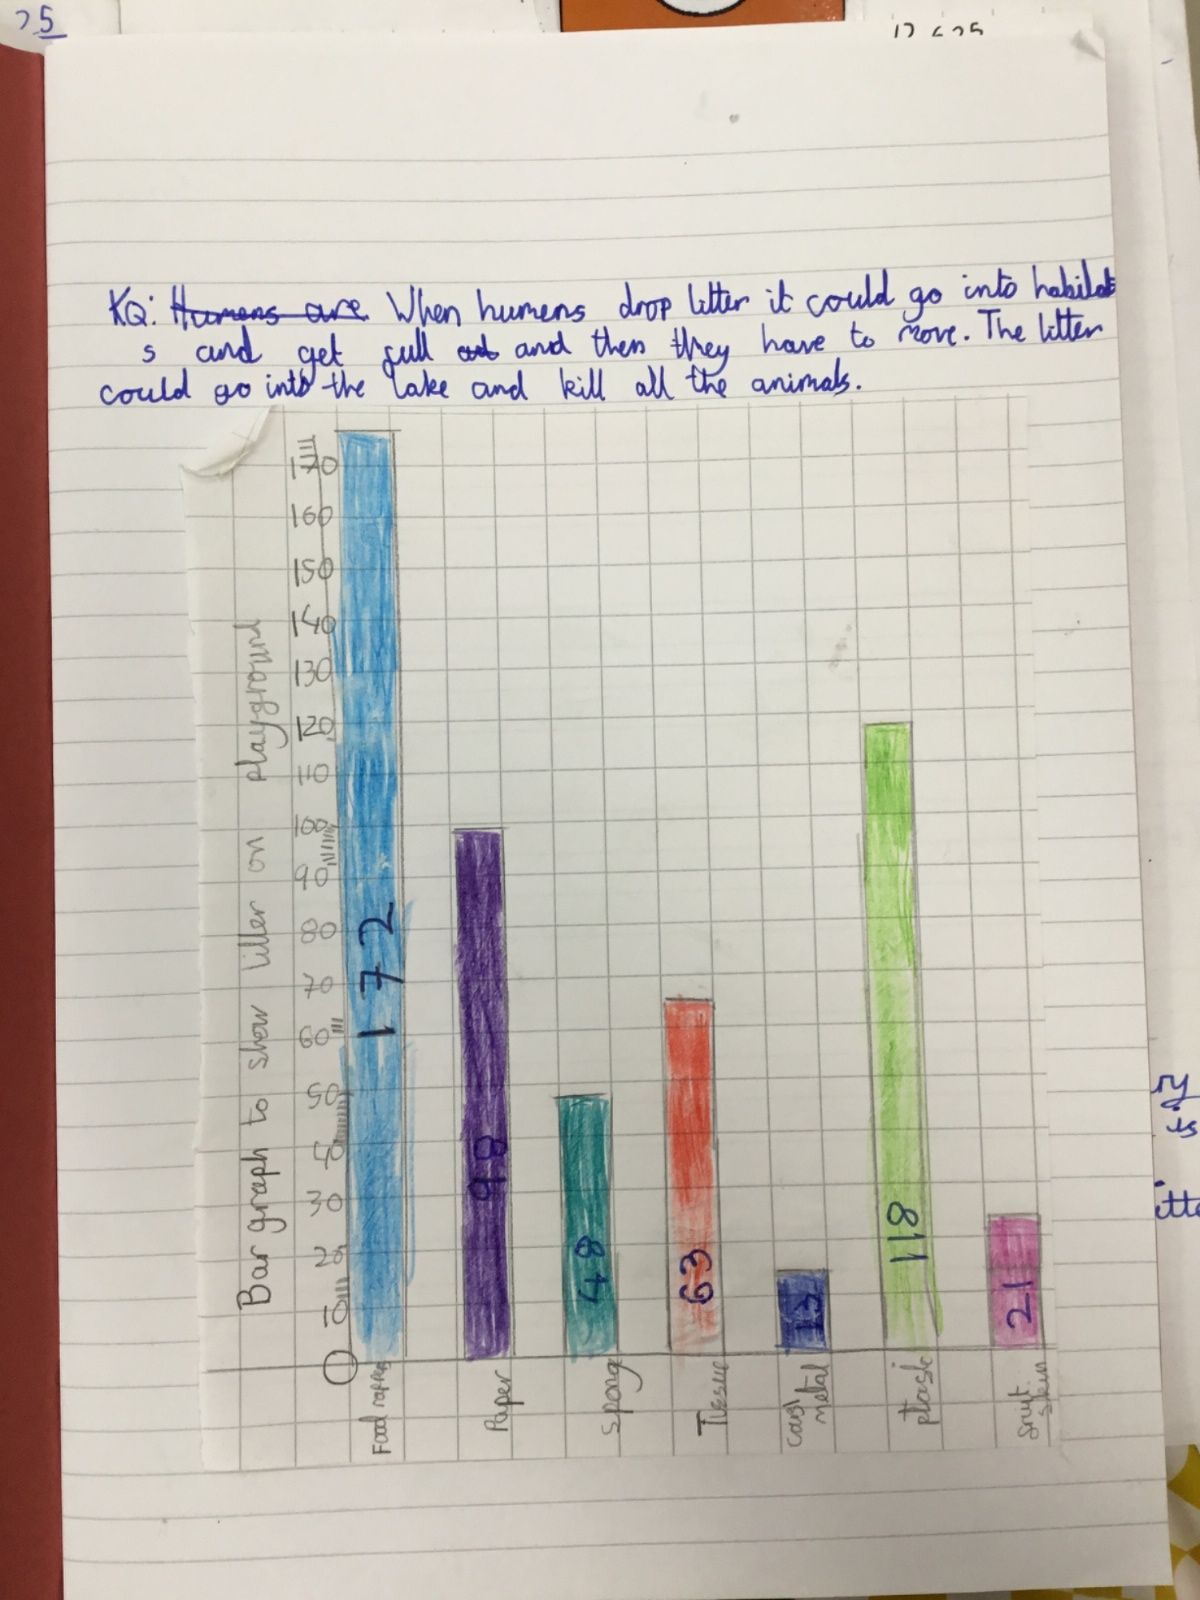 25
KQ: Humans are When humens drop litter it could go into habitat
s and get full and and then they have to move. The litter
could go into the lake and kill all the animals.
Bar graph to show litter on playground
170
160
150
140
130
120
110
100
90
80
70
60
50
40
30
20
10
0
172
98
48
63
13
118
21
Food
Paper
Spong
Tissue
metal
Plasic
skin